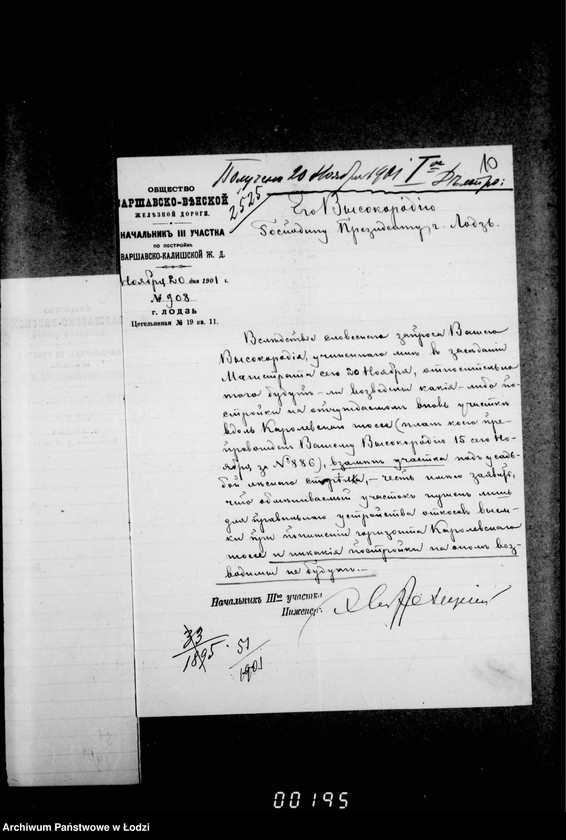 Получено 20 Ноября 1901 г.
10
2525
ОБЩЕСТВО
ВАРШАВСКО-ВѢНСКОЙ
ЖЕЛѢЗНОЙ ДОРОГИ.
НАЧАЛЬНИКЪ III УЧАСТКА
ПО ПОСТРОЙКѢ
ВАРШАВСКО-КАЛИШСКОЙ Ж. Д.
Ноября 20 дня 1901 г.
№ 908
Г. ЛОДЗЬ
Цегельнянная № 19 кв. 11.
Его Высокородію
Господину Президенту г. Лодзь.
Вслѣдствіе словеснаго запроса Вашего
Высокородія, учиненнаго мнѣ въ засѣданіи
Магистрата сего 20 Ноября, относительно
того будутъ-ли возведены какія-либо по-
стройки на отчуждаемомъ вновь участкѣ
вдоль Каролевскаго шоссе (планъ коего пре-
провожденъ Вашему Высокородію 15 сего Но-
ября за № 886), взамѣнъ участка подъ усадь-
бой лѣснаго стрѣлка, - честь имѣю заявить,
что участокъ нуженъ лишь
для правильнаго устройства откосовъ выем-
ки при пониженіи горизонта Каролевскаго
шоссе и никакія постройки на ономъ воз-
водимы не будутъ. -
Начальникъ IIIго участка
Инженеръ
33/1895. 51/1901
00195
Archiwum Państwowe w Łodzi